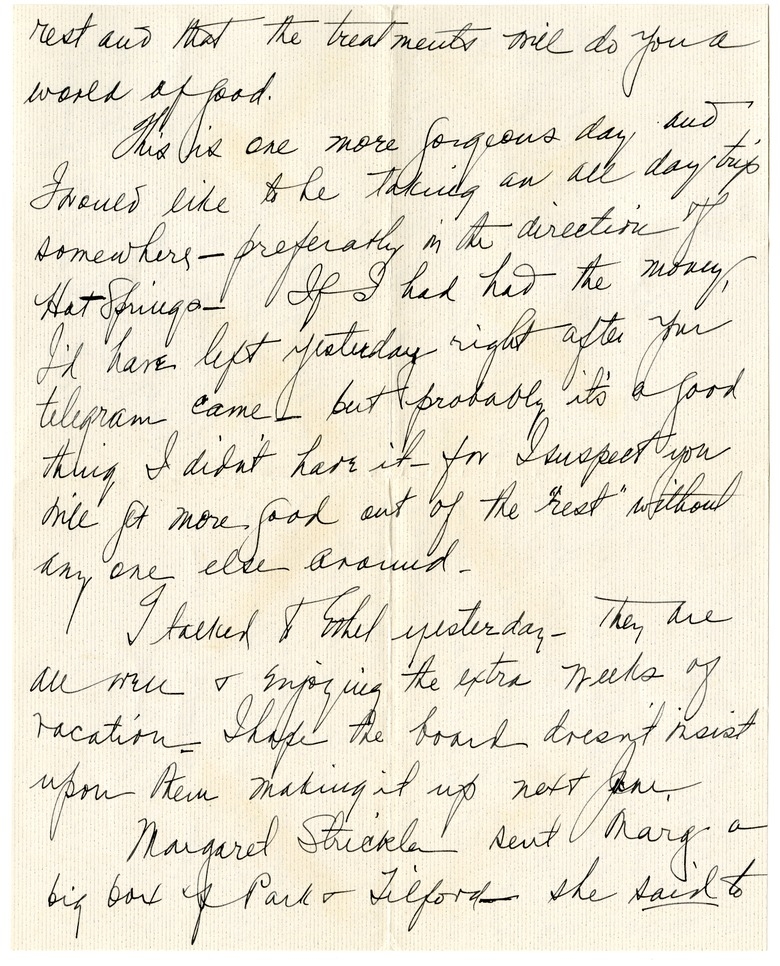 rest and that the treatments will do you a
world of good.
This is one more gorgeous day and
I would like to be taking an all day trip
somewhere — preferably in the direction of
Hot Springs — If I had had the money,
I'd have left yesterday right after your
telegram came — but probably it's a good
thing I didn't have it — for I suspect you
will get more good out of the "rest" without
any one else around —
I talked to Ethel yesterday — They are
all well & enjoying the extra weeks of
vacation — I hope the board doesn't insist
upon them making it up next June.
Margaret Strickle sent Marg a
big box of Park & Tilford — she said to